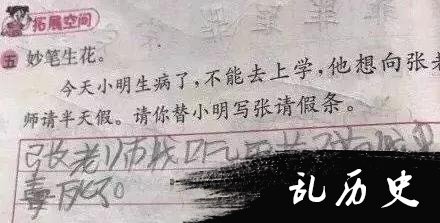 拓展空间
五 妙笔生花。
今天小明生病了,不能去上学,他想向张老
师请半天假。请你替小明写张请假条。
张老师我
毒死了。
乱历史